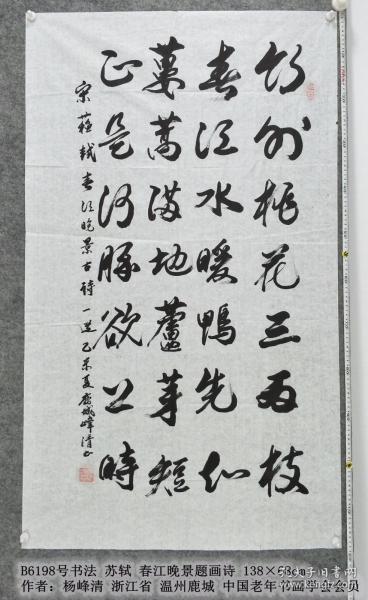 竹外桃花三两枝
春江水暖鴨先知
蔞蒿满地蘆芽短
正是河豚欲上時
宋蘇軾春江晚景古詩一首乙未夏鹿城峰清书
B6198号书法 苏轼 春江晚景题画诗 138×68cm
作者：杨峰清 浙江省 温州鹿城 中国老年书画学会会员